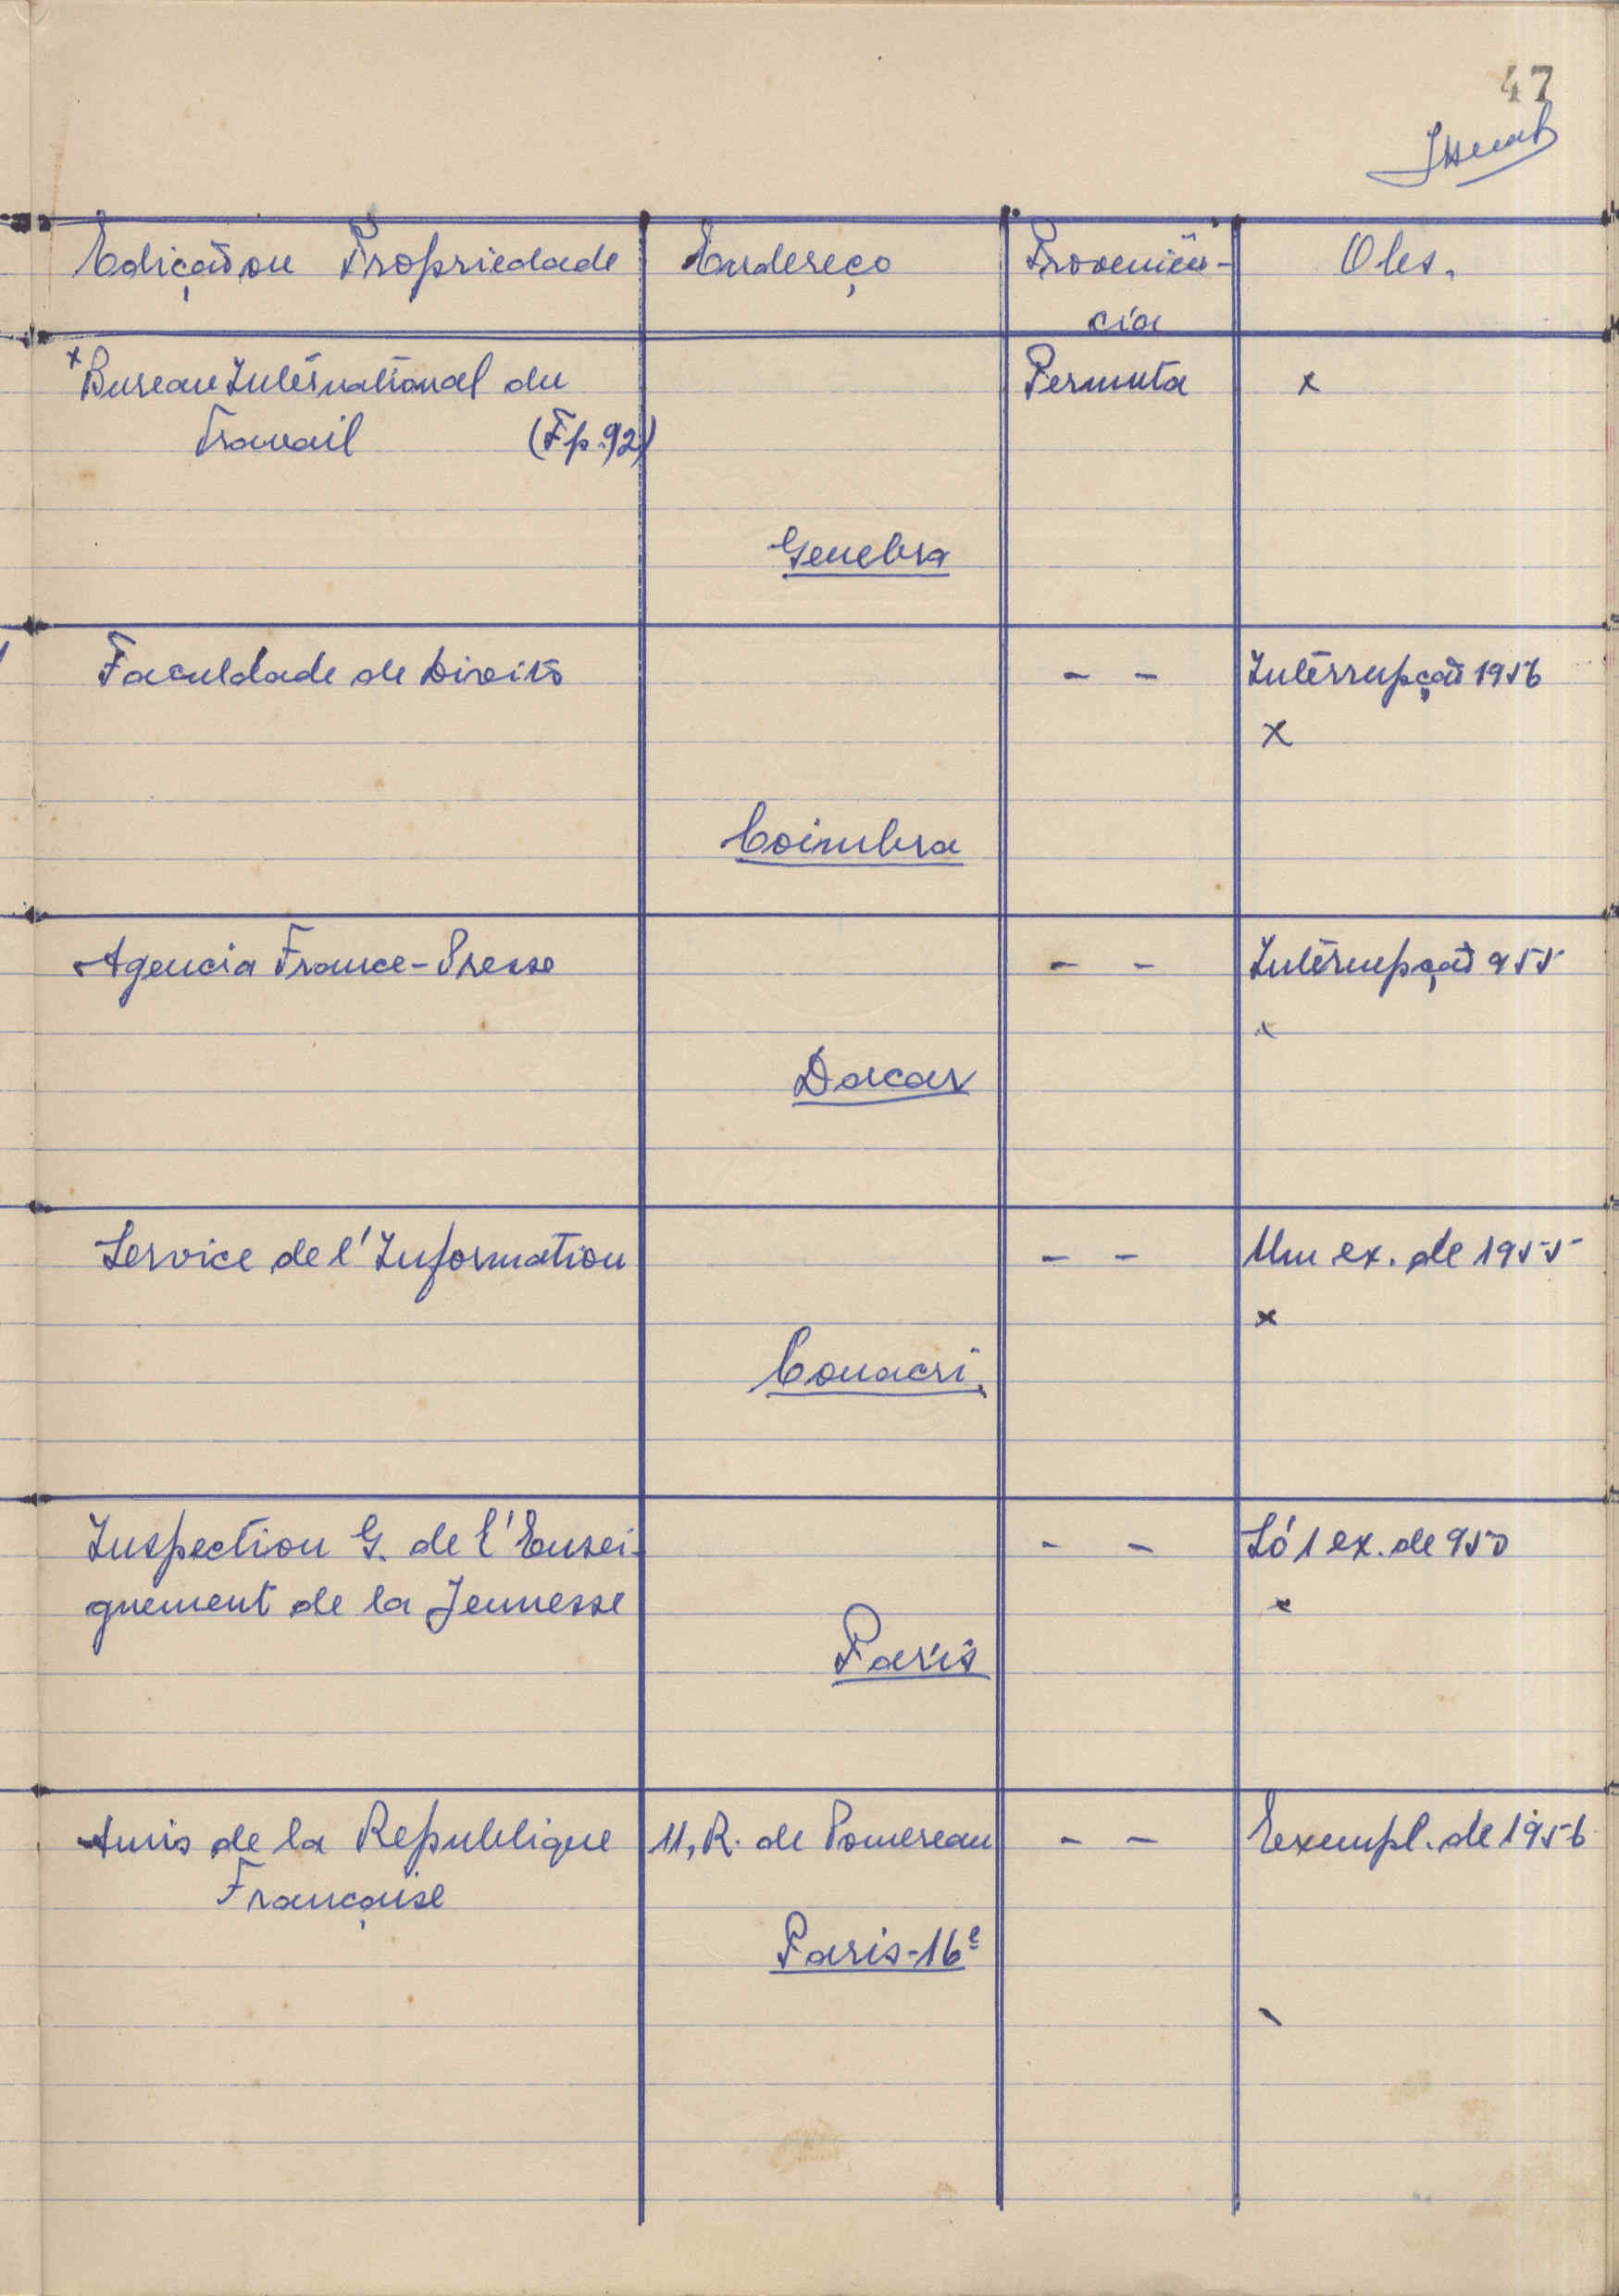 47
Edição ou Propriedade Endereço Proveniên- Obs.
cia
x Bureau International du Permuta x
Travail (Fp.92)
Genebra
Faculdade de Direito - - Interrupção 1956
x
Coimbra
Agencia France-Presse - - Interrupção 955
x
Dacar
Service de l'Information - - Um ex. de 1955
x
Conacri.
Inspection G. de l'Ensei- - - Só 1 ex. de 950
gnement de la Jeunesse x
Paris
Amis de la Republique 11, R. de Pomereau - - Exempl. de 1956
Française
Paris-16e